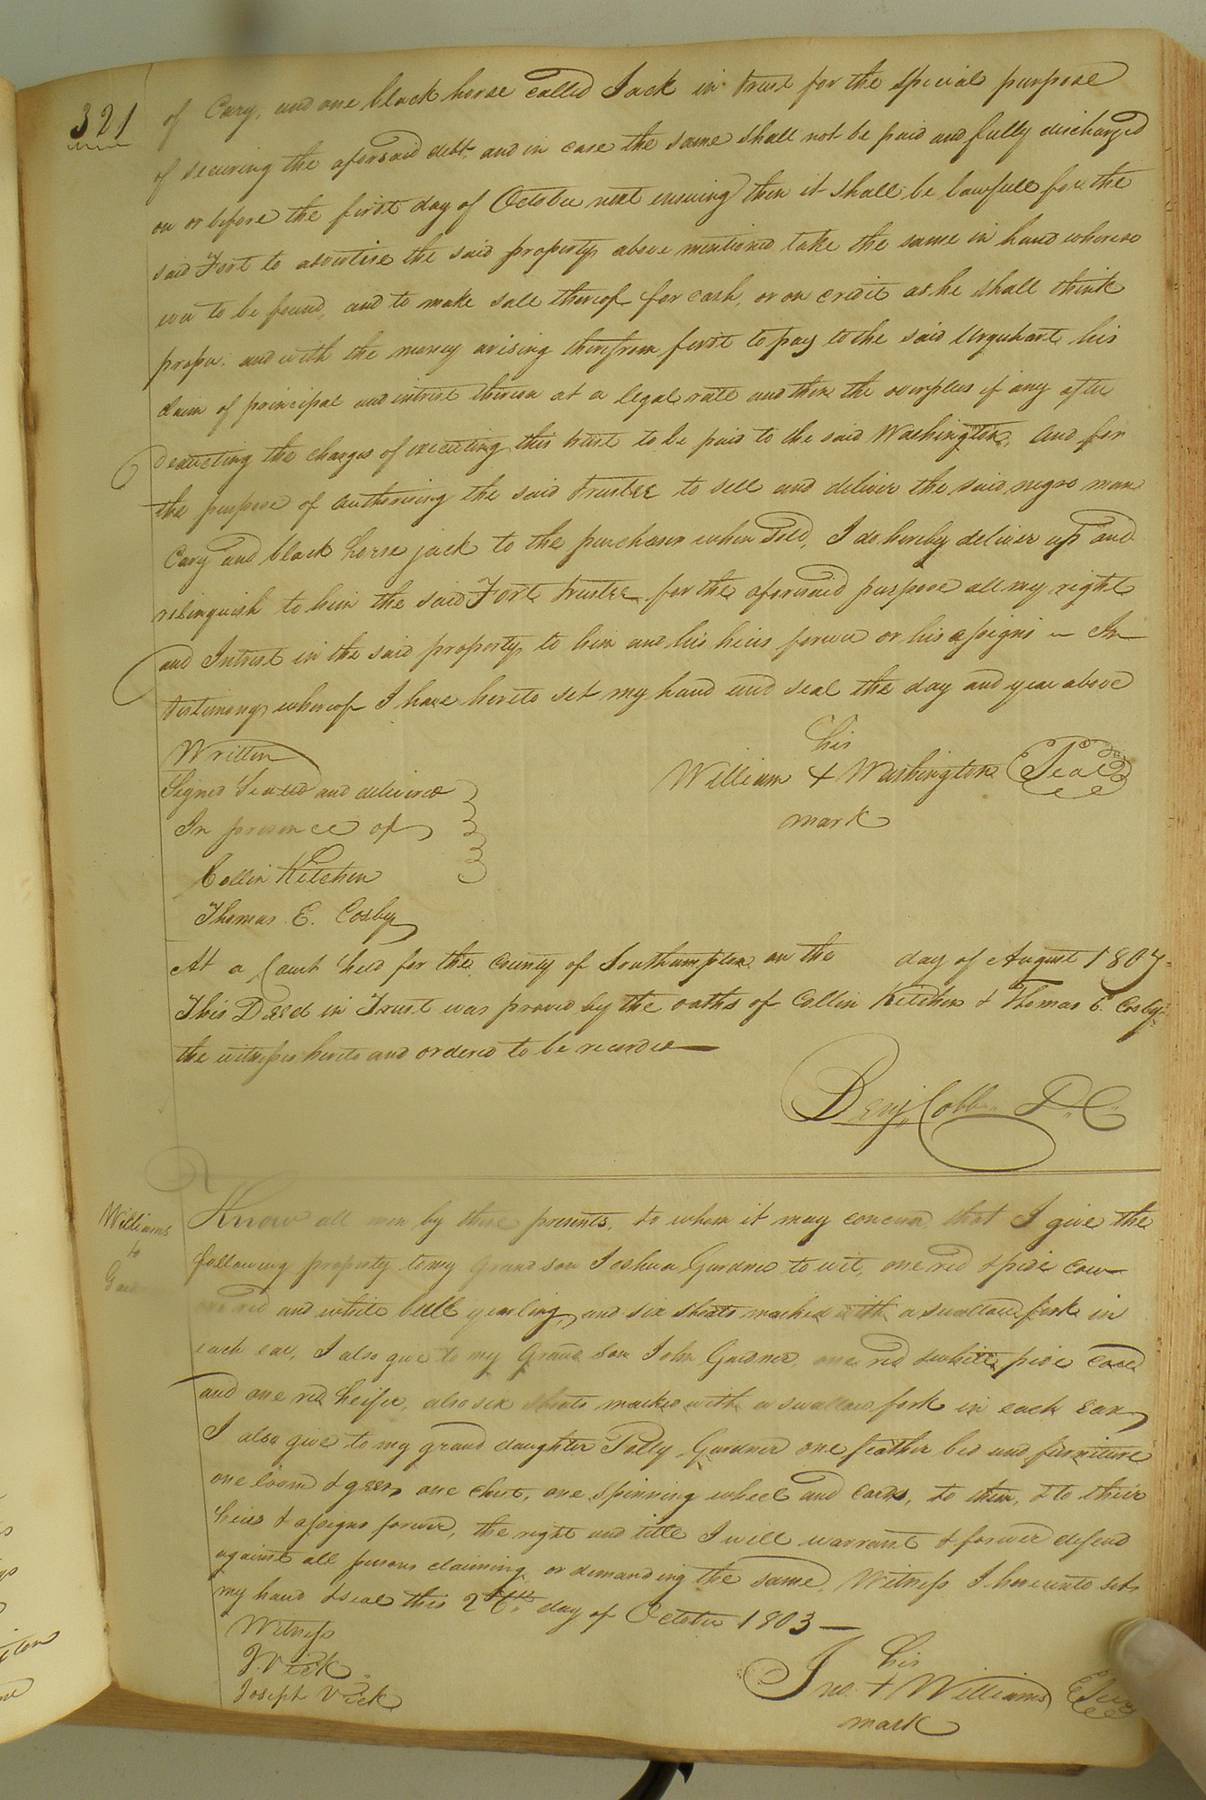 321
of Cary, and one black horse called Jack in trust for the special purpose
of securing the aforsaid debt, and in case the same shall not be paid and fully discharged
on or before the first day of October next ensuing then it shall be lawfull for the
said Fort to advertise the said property above mentioned take the same in hand wherese
ever to be found, and to make sale thereof for cash, or on credit as he shall think
proper. and with the money arising therefrom first to pay to the said Urquhart his
claim of principal and intrest thereon at a legal rate and then the overplus if any after
deducting the charges of executing this trust to be paid to the said Washington. and for
the purpose of authorising the said trustee to sell and deliver the said negro man
Cary and black horse jack to the purchaser when sold, I do hereby deliver up and
relinquish to him the said Fort trustee for the aforesaid purpose all my right
and Intrest in the said property to him and his heirs forever or his assigns – In
testimony whereof I have hereto set my hand and seal the day and year above
Written
Signed Sealed and delivered
In presence of
Collin Kitchen
Thomas E. Cosby
his
William + Washington Seal
mark
At a Court held for the County of Southampton on the day of August 1807.
This Deed in Trust was proved by the oaths of Collin Kitchen & Thomas E. Cosby
the witnesses hereto and ordered to be recorded
Benj. Cobb D. C.
Williams
to
Know all men by these presents, to whom it may concern, that I give the
following property to my Grand son Joshua Gardner to wit, one red & pide cow
one red and white bull yearling, and six shoats marked with a swallow fork in
each ear, I also give to my Grand Son John Gardner, one red & white pide cow
and one red heifer, also six shoats marked with a swallow fork in each Ear,
I also give to my grand daughter Polly Gardner one feather bed and furniture
one loom & geer, one chest, one spinning wheel and cards, to them, & to their
heirs & assigns forever, the right and title I will warrant & forever defend
against all persons claiming or demanding the same. Witness I hereunto set
my hand & seal this 26th day of October 1803
Witness
J. Vick
Joseph Vick
his
Jno. + Williams Seal
mark